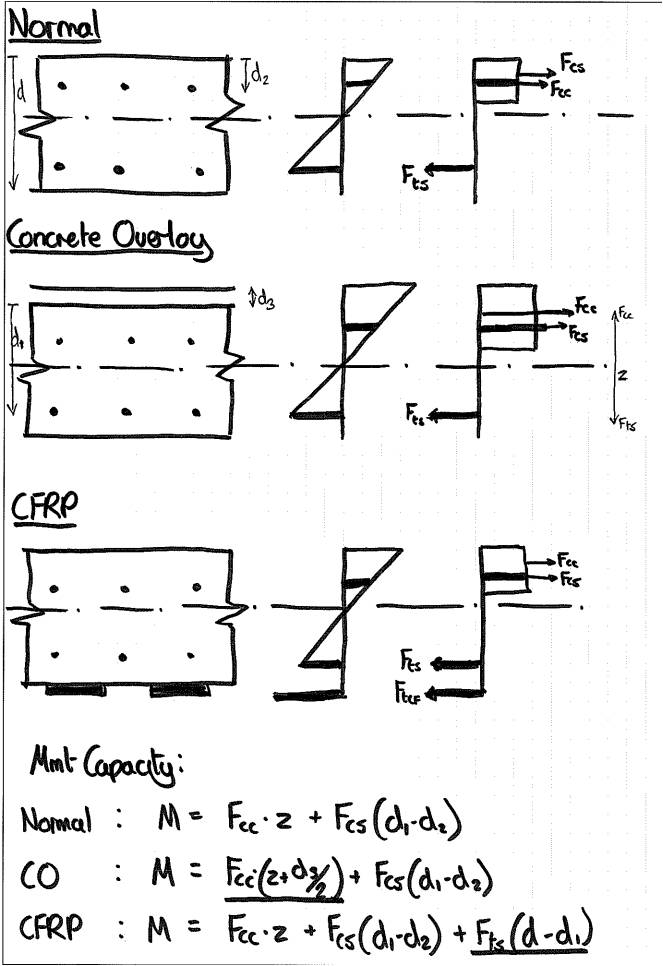 Normal
d
d₂
Fcs
Fcc
Fts
Concrete Overlay
d₃
d₁
Fcc
Fcs
Fts
Fcc
z
Fts
CFRP
Fcc
Fcs
Fts
FtCF
Mmt Capacity:
Normal : M = Fcc·z + Fcs(d₁-d₂)
CO : M = Fcc·(z+d₃/2) + Fcs(d₁-d₂)
CFRP : M = Fcc·z + Fcs(d₁-d₂) + Fts(d-d₁)